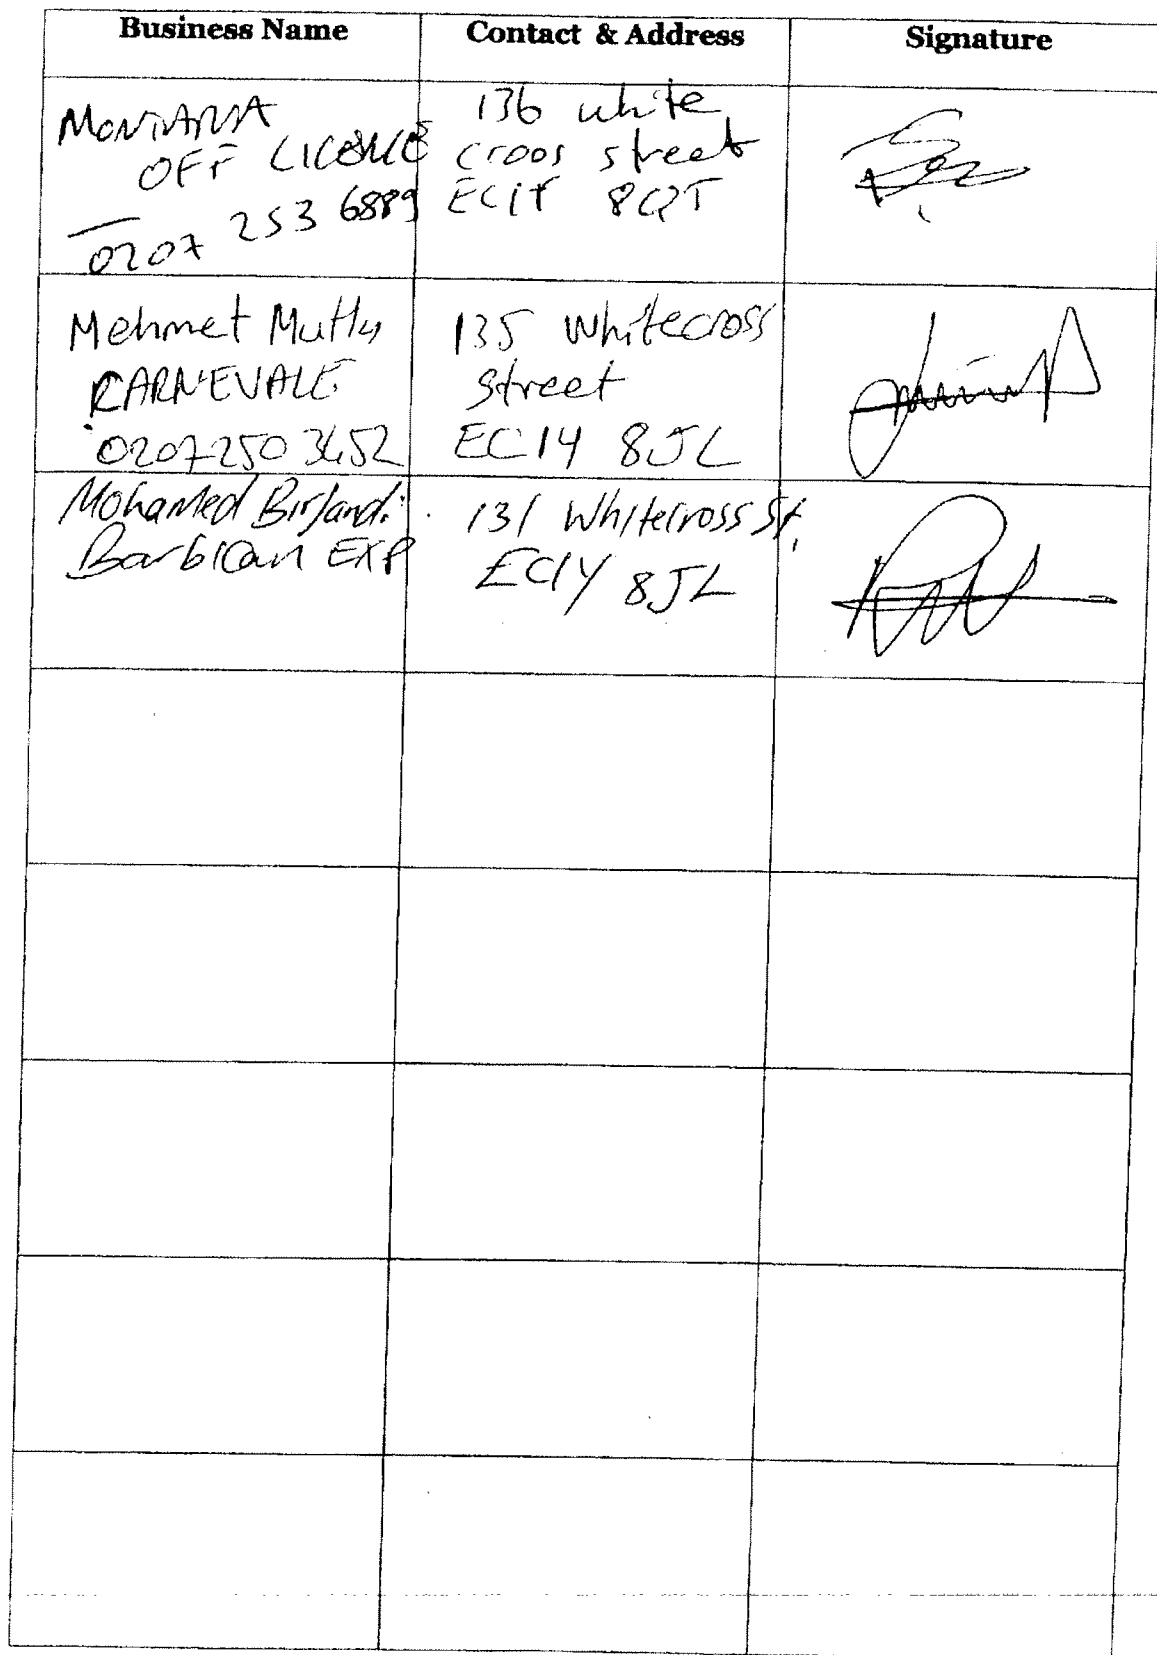 Business Name
Contact & Address
Signature
MONTANA
OFF LICENCE
0207 253 6889
136 white
croos street
EC1Y 8QT
Mehmet Mutlu
CARNEVALE
0207250 3452
135 Whitecross
Street
EC1Y 8JL
Mohamed Birjandi
Barbican EXP
131 Whitecross St,
EC1Y 8JL